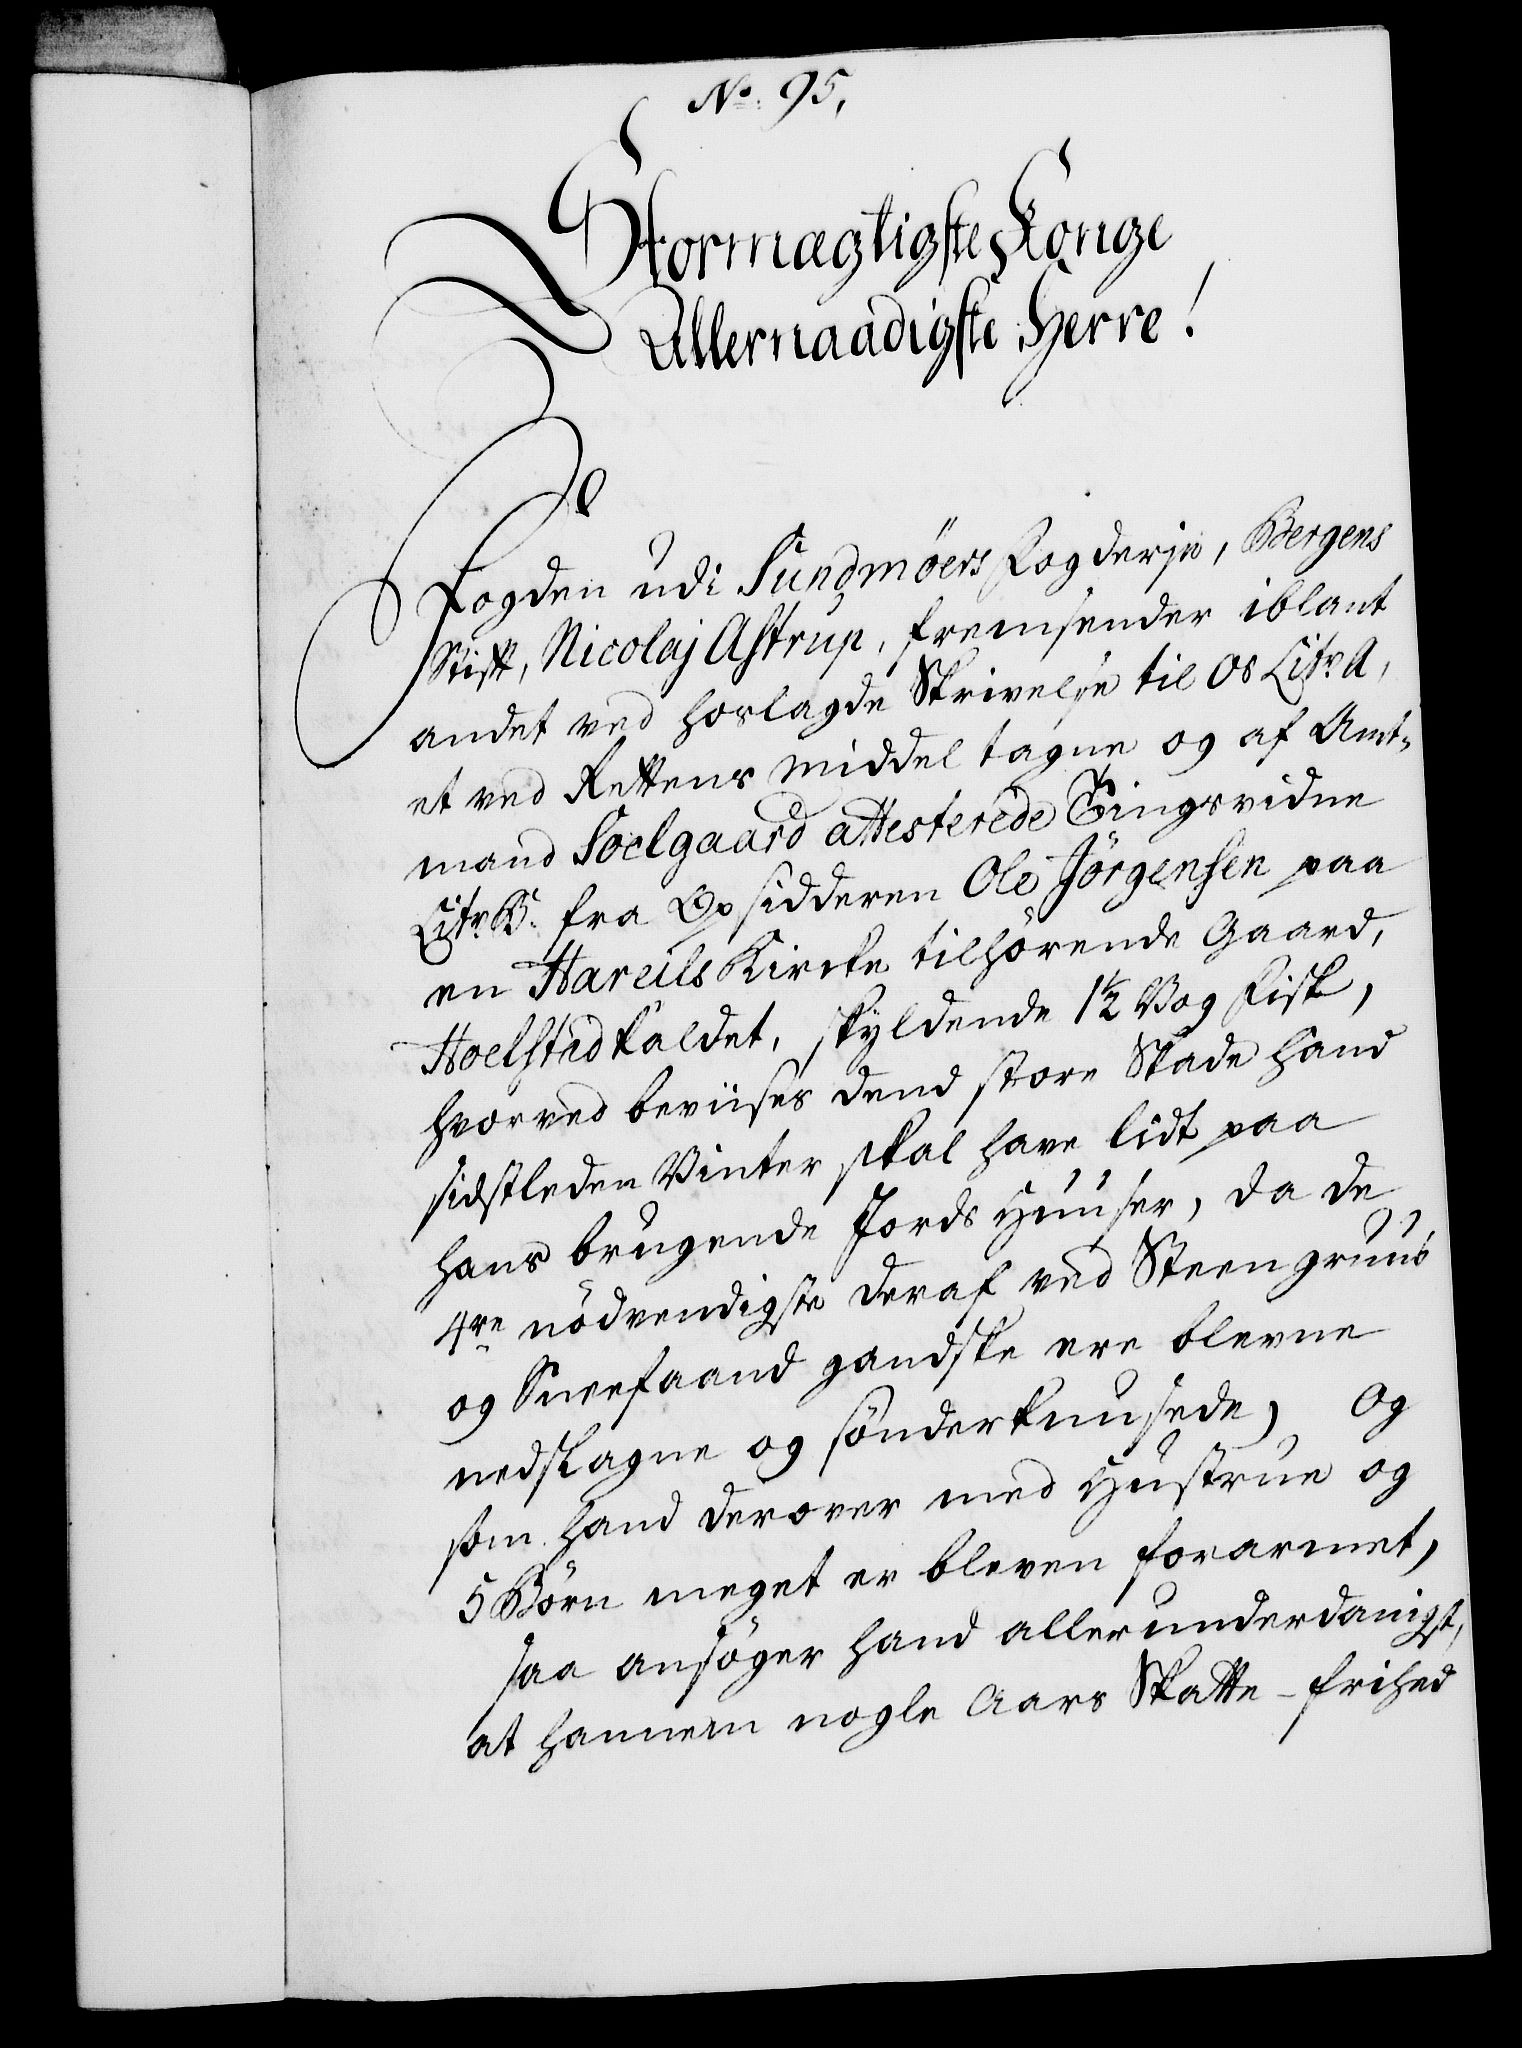 No: 95,
Stormægtigste Konge
Allernaadigste Herre!
Fogden udi Sundmöers Fogderje, Bergens
Stift, Nicolaj Astrup, fremsender iblant
andet ved hoslagde Skrivelse til os Litr. A,
et ved Rettens middel tagne og af Amt-
mand Soelgaard attesterede Tingsvidne
Litr. B. fra Opsidderen Ole Jörgensen paa
en Hareils Kircke tilhörende Gaard,
Hoelstad kaldet, skyldende 1½ Vog Fisk,
hvorved beviises dend store Skade hand
sidstleden Vinter skal have lidt paa
hans brugende Jords Huuser, da de
4re nödvendigste deraf ved Steengruus
og Sneefaand gandske ere blevne
nedslagne og sönderknusede, og
som hand derover med Hustrue og
5 Börn meget er bleven forarmet,
saa ansöger hand allerunderdanigst,
at hannem nogle Aars Skatte-frihed